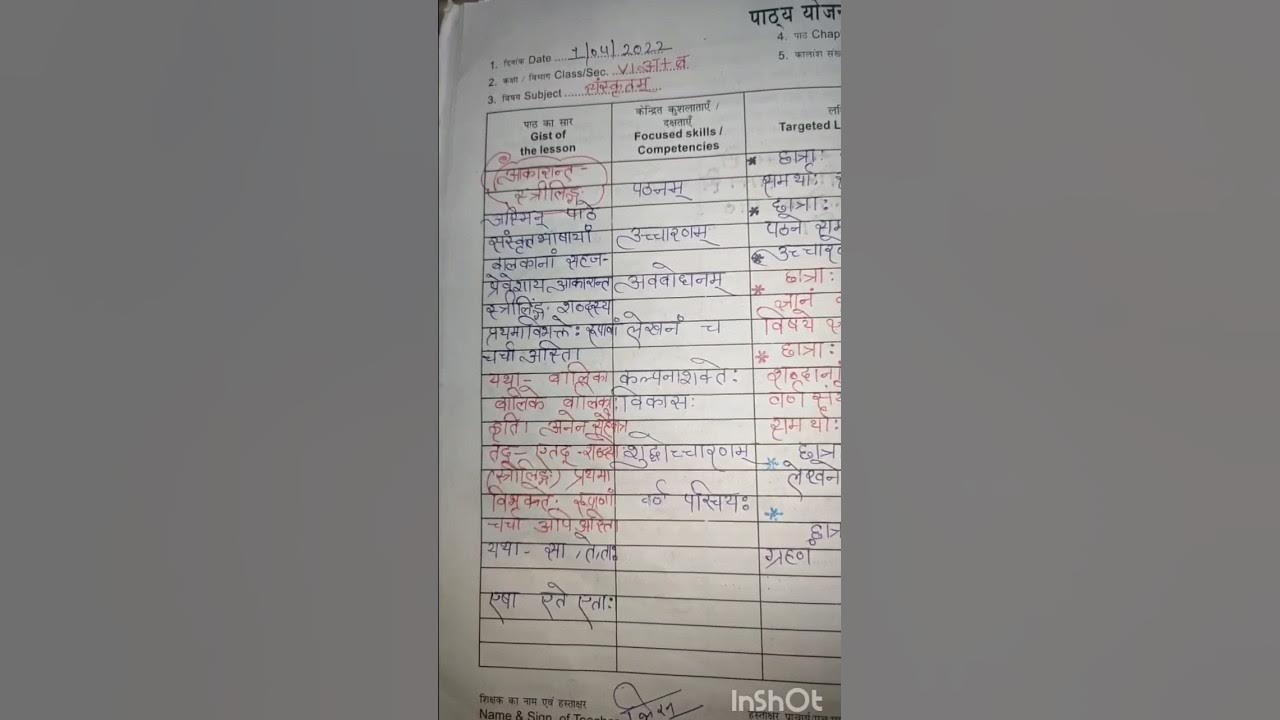 पाठ्य योजन
1. दिनांक Date 1/04/2022
4. पाठ Chap
2. कक्षा / विभाग Class/Sec. VI अ+ब
5. कालांश संख
3. विषय Subject संस्कृतम्
पाठ का सार
Gist of
the lesson
केन्द्रित कुशलताएँ /
दक्षताएँ
Focused skills /
Competencies
Targeted L
आकारान्त-
स्त्रीलिङ्ग
अस्मिन् पाठे
संस्कृतभाषायां
बालकानां सहज-
प्रवेशाय आकारान्त
स्त्रीलिङ्ग शब्दस्य
प्रथमाविभक्तेः रूपाणां
चर्चा अस्ति।
यथा- बालिका
बालिके बालिकाः
इति। अनेन सहैव
तद्-एतद्-शब्दयोः
(स्त्रीलिङ्गे) प्रथमा
विभक्तेः रूपाणां
चर्चा अपि अस्ति
यथा- सा, ते, ताः
एषा एते एताः
पठनम्
उच्चारणम्
अवबोधनम्
लेखनं च
कल्पनाशक्तेः
विकासः
शुद्धोच्चारणम्
वर्ण परिचयः
* छात्राः
समर्थाः
* छात्राः
पठने सम
* उच्चार
* छात्राः
ज्ञानं
विषये
* छात्राः
शब्दानां
वर्ण सं
समर्थाः
* छात्र
लेखने
*
छात्र
ग्रहणं
शिक्षक का नाम एवं हस्ताक्षर
Name & Sign. of Teacher
InShOt